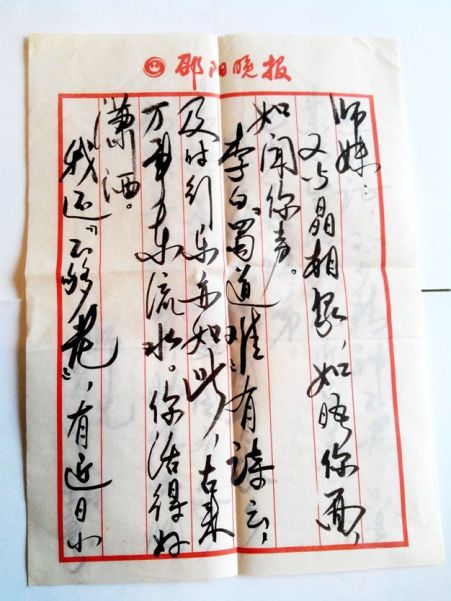 邵阳晚报
师妹：
又与晶相聚，如晤你面，
如闻你声。
李白“蜀道难”有诗云，
及时行乐亦如此，古来
万事东流水。你活得好
潇洒。
我还“不够老”，有近日小